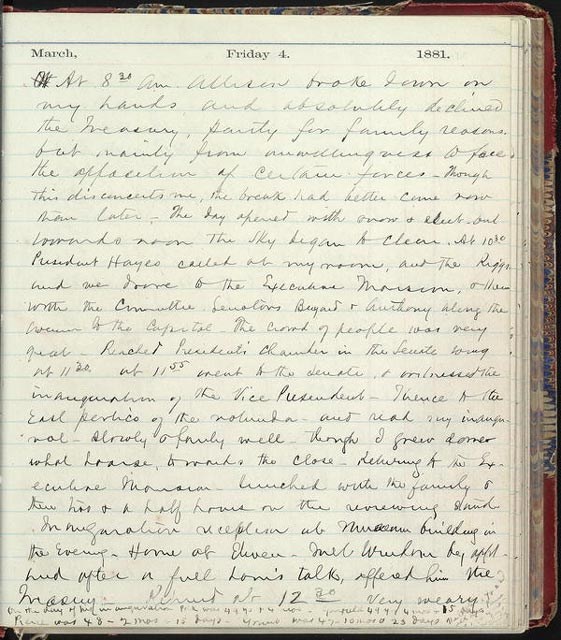 March, Friday 4. 1881.
At 8 30 am. Allison broke down on
my hands and absolutely declined
the Treasury, partly for family reasons.
but mainly from unwillingness to face
the opposition of certain forces - Though
this disconcerts me, the break had better come now
than later - The day opened with snow & sleet - but
towards noon the sky began to clear. At 10 30
President Hayes called at my room, and the
and we drove to the Executive Mansion, & then
with the Committee Senators Bayard & Anthony along the
avenue to the Capitol - The crowd of people was very
great - Reached President's Chamber in the Senate wing
at 11 30 at 11 55 went to the Senate & witnessed the
inauguration of the Vice President - Thence to the
East portico of the rotunda - and read my inaugu-
ral - slowly & fairly well - though I grew some
what hoarse, towards the close - Returning to the Ex-
ecutive Mansion lunched with the family &
then two & a half hours on the reviewing stand
Inauguration reception at Museum building in
the Evening - Home at Eleven - met Windom by appt
and after a full hour's talk, offered him the
Treasury. Retired at 12 30 very weary
On the day of my inauguration
Pierce was 48 - 2 mos -